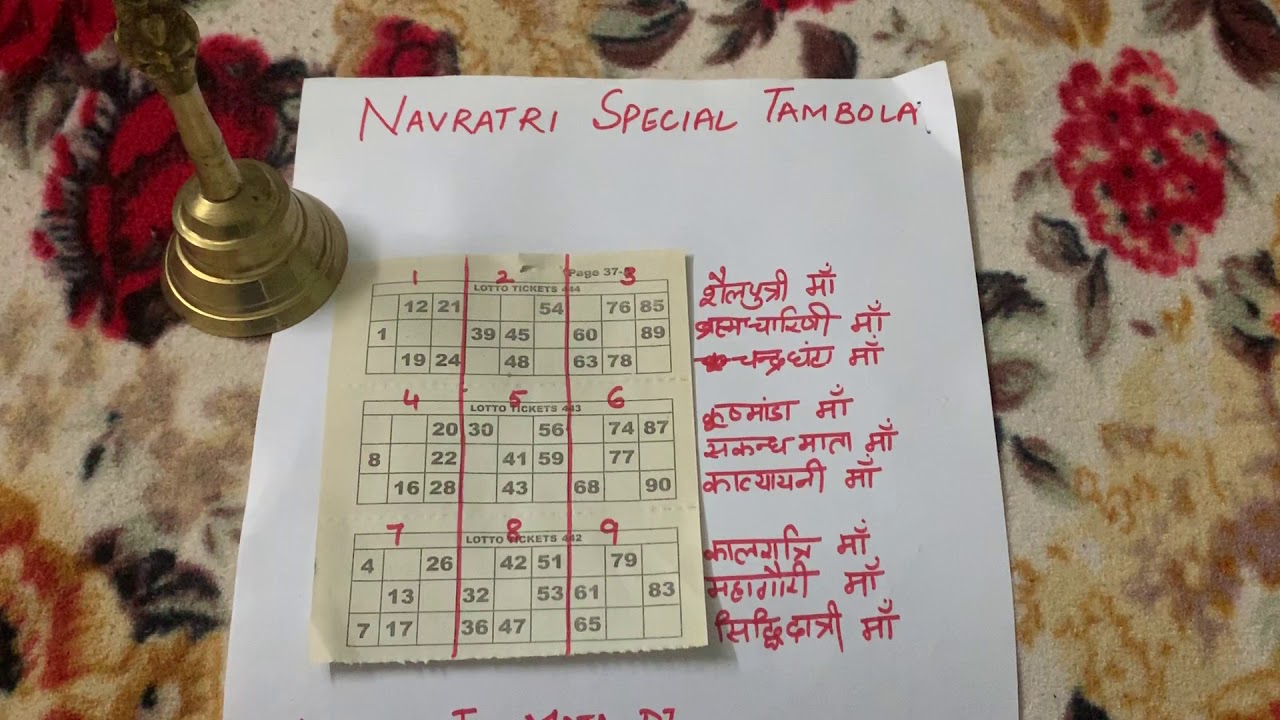 NAVRATRI SPECIAL TAMBOLA
1 2 3
Page 37-
LOTTO TICKETS 444
12 21 54 76 85
1 39 45 60 89
19 24 48 63 78
शैलपुत्री माँ
ब्रह्मचारिणी माँ
चन्द्रघंटा माँ
4 5 6
LOTTO TICKETS 443
20 30 56 74 87
8 22 41 59 77
16 28 43 68 90
कूष्मांडा माँ
सकन्ध माता माँ
कात्यायनी माँ
7 8 9
LOTTO TICKETS 442
4 26 42 51 79
13 32 53 61 83
7 17 36 47 65
कालरात्रि माँ
महागौरी माँ
सिद्धिदात्री माँ